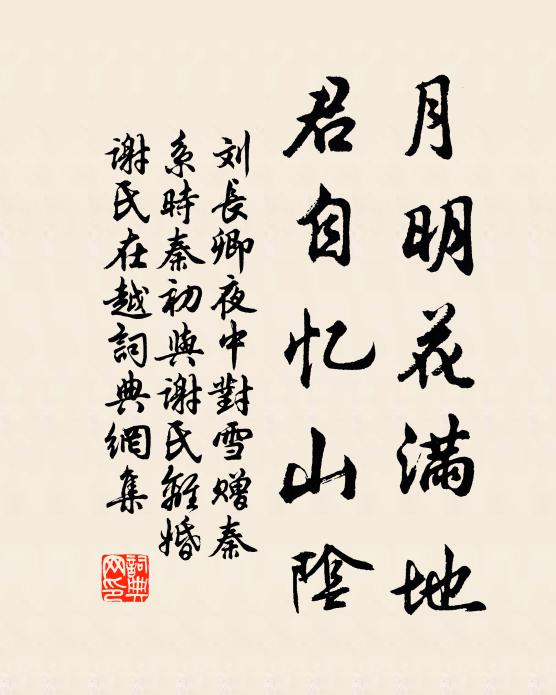 月明花满地
君自忆山阴
刘長卿夜中對雪赠秦
系時秦初與谢氏離婚
谢氏在越詞典網集
詞典网印